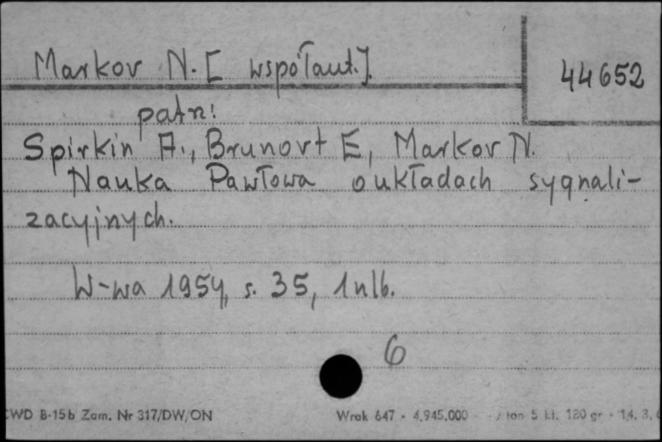 Markov N. [współaut.].
44652
patrz:
Spirkin A., Brunovt E, Markov N.
Nauka Pawłowa o układach sygnali-
zacyjnych.
W-wa 1954, s. 35, 1 nlb.
6
CWD B-15b Zam. Nr 317/DW/ON
Wrak 647 - 4,945,000 - ton 5 kl. 120 gr - 14. 3.